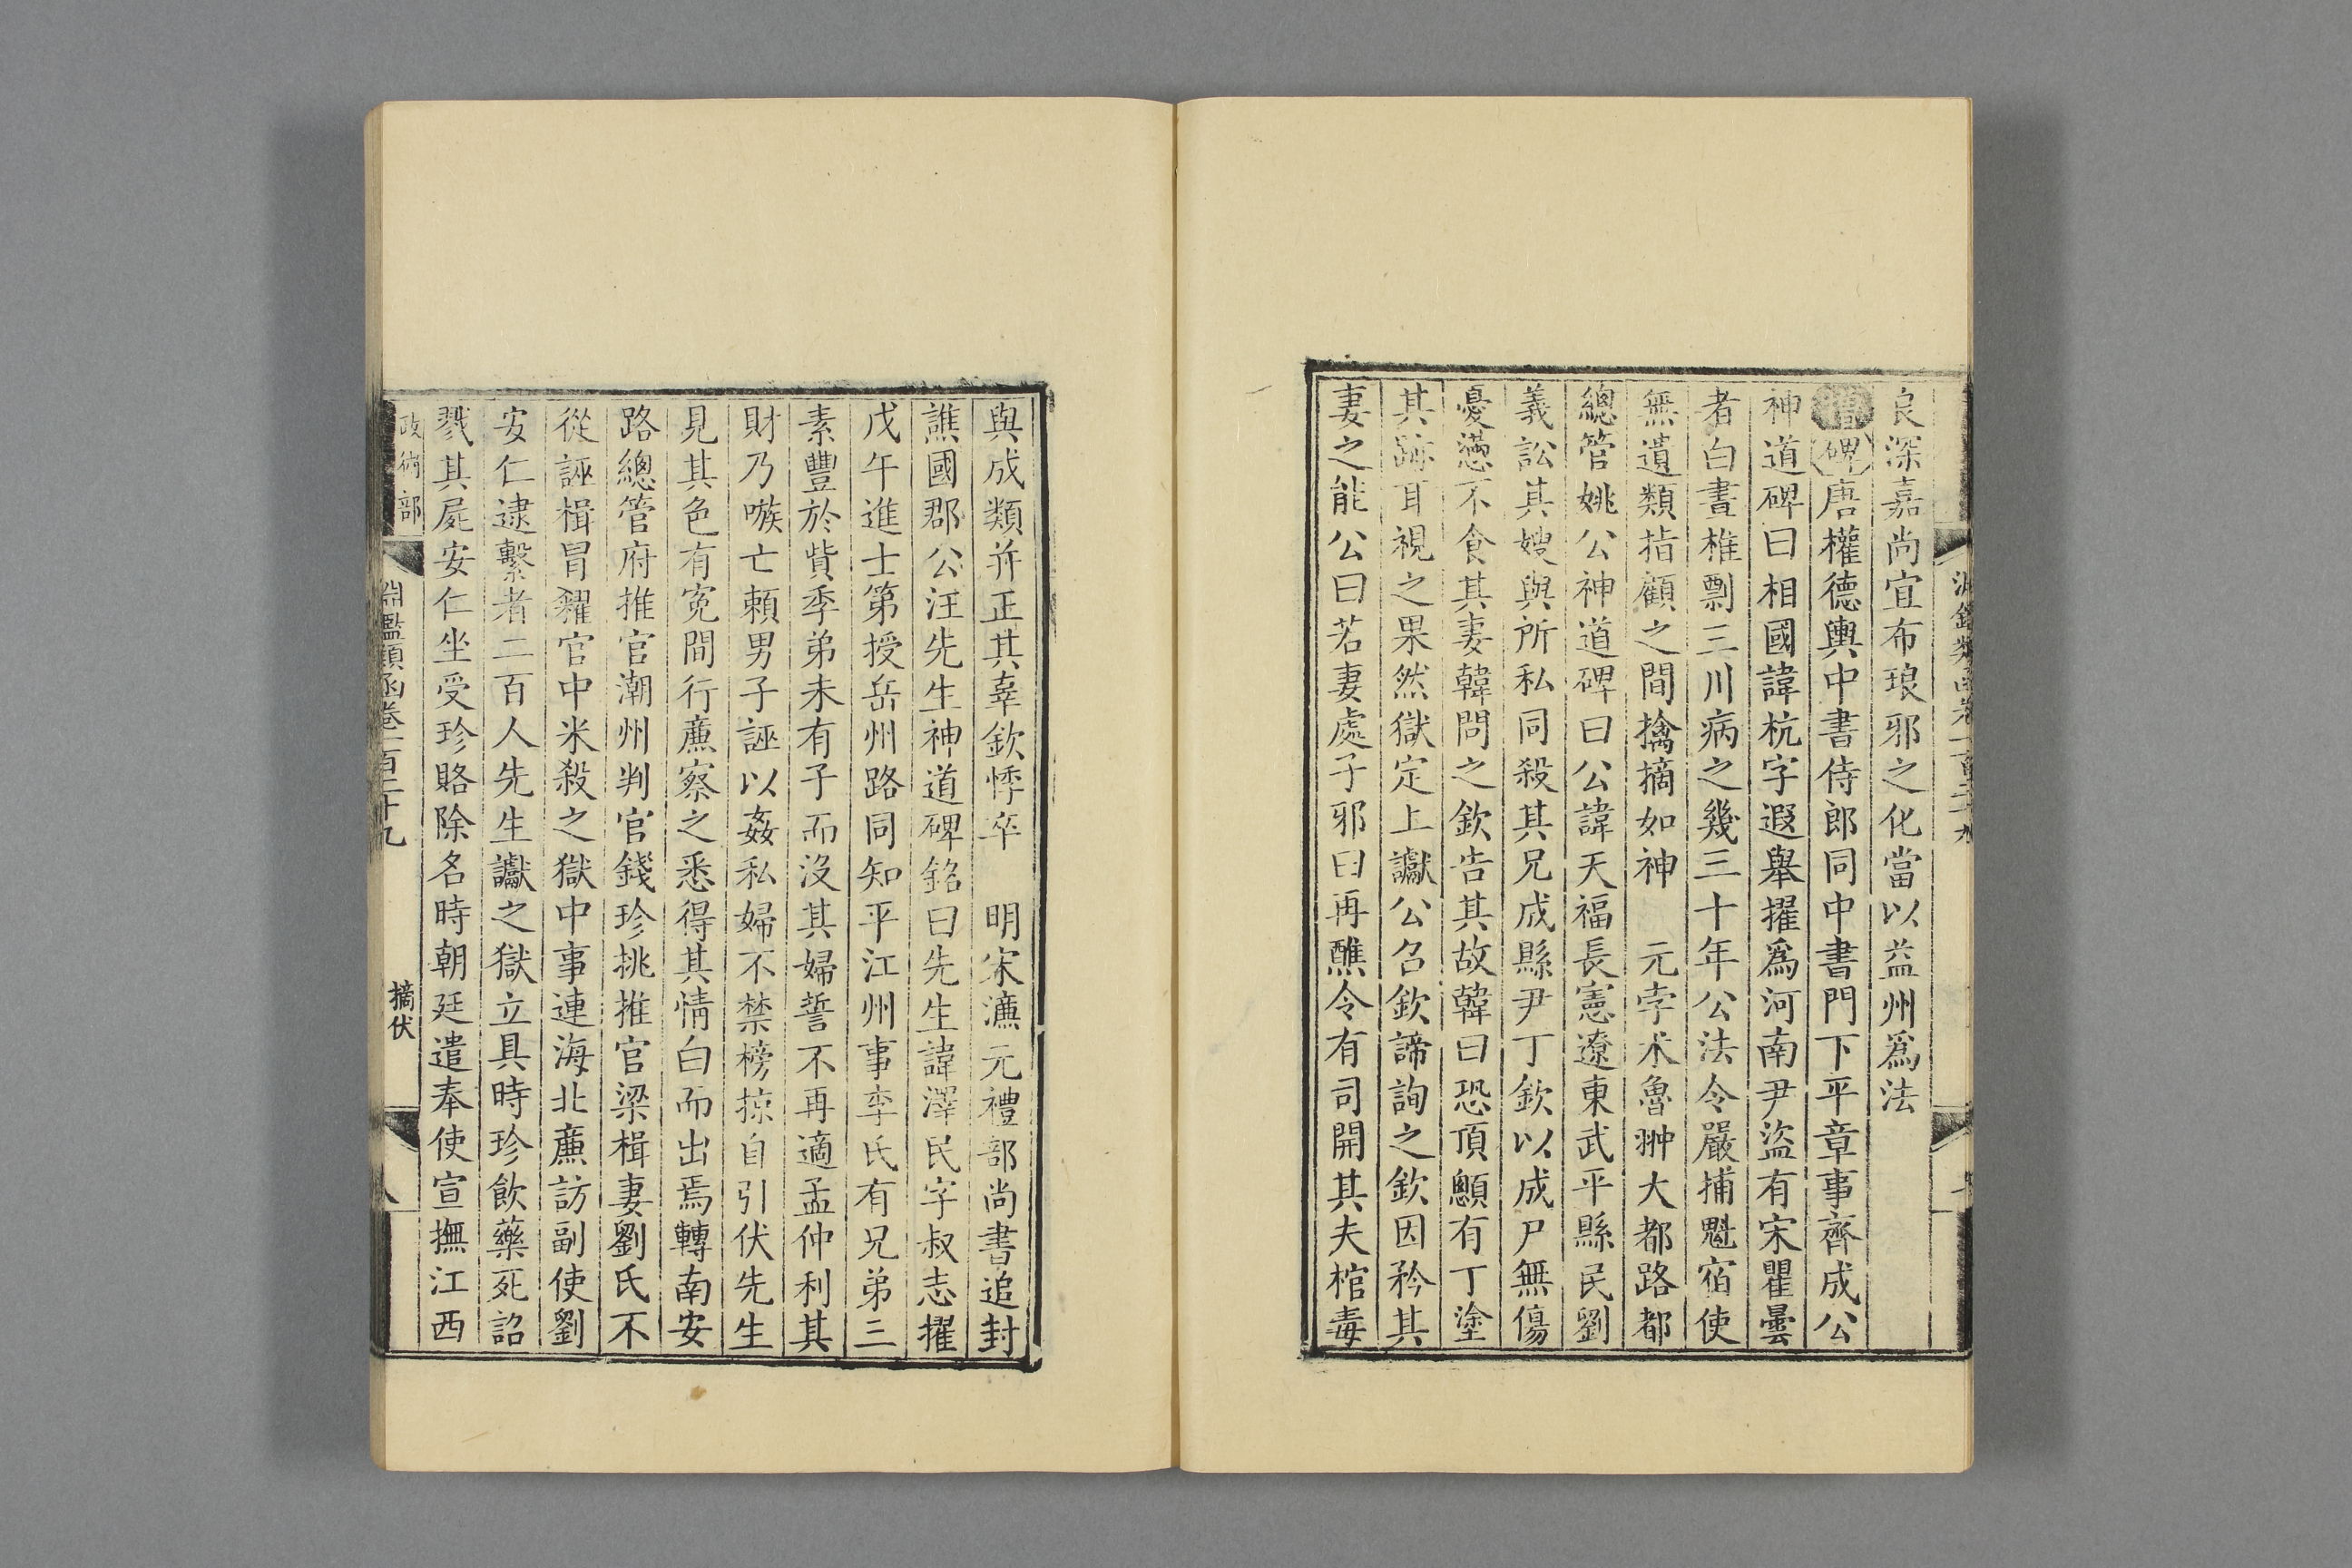 良深嘉尚宜布琅邪之化當以益州爲法
增碑唐權德輿中書侍郎同中書門下平章事齊成公
神道碑曰相國諱杭字遐舉擢爲河南尹盜有宋瞿曇
者白晝椎剽三川病之幾三十年公法令嚴捕魁宿使
無遺類指顧之間擒摘如神　元孛朮魯翀大都路都
總管姚公神道碑曰公諱天福長憲遼東武平縣民劉
義訟其嫂與所私同殺其兄成縣尹丁欽以成尸無傷
憂懣不食其妻韓問之欽告其故韓曰恐頂顱有丁塗
其跡耳視之果然獄定上讞公召欽諦詢之欽因矜其
妻之能公曰若妻處子邪曰再醮令有司開其夫棺毒
與成類并正其辜欽悸卒　明宋濂元禮部尚書追封
譙國郡公汪先生神道碑銘曰先生諱澤民字叔志擢
戊午進士第授岳州路同知平江州事李氏有兄弟三
素豐於貲季弟未有子而沒其婦誓不再適孟仲利其
財乃嗾亡賴男子誣以姦私婦不禁榜掠自引伏先生
見其色有寃間行廉察之悉得其情白而出焉轉南安
路總管府推官潮州判官錢珍挑推官梁楫妻劉氏不
從誣楫冒糴官中米殺之獄中事連海北廉訪副使劉
安仁逮繫者二百人先生讞之獄立具時珍飲藥死詔
戮其屍安仁坐受珍賂除名時朝廷遣奉使宣撫江西
政術部
淵鑑類函卷一百二十九
摘伏
八